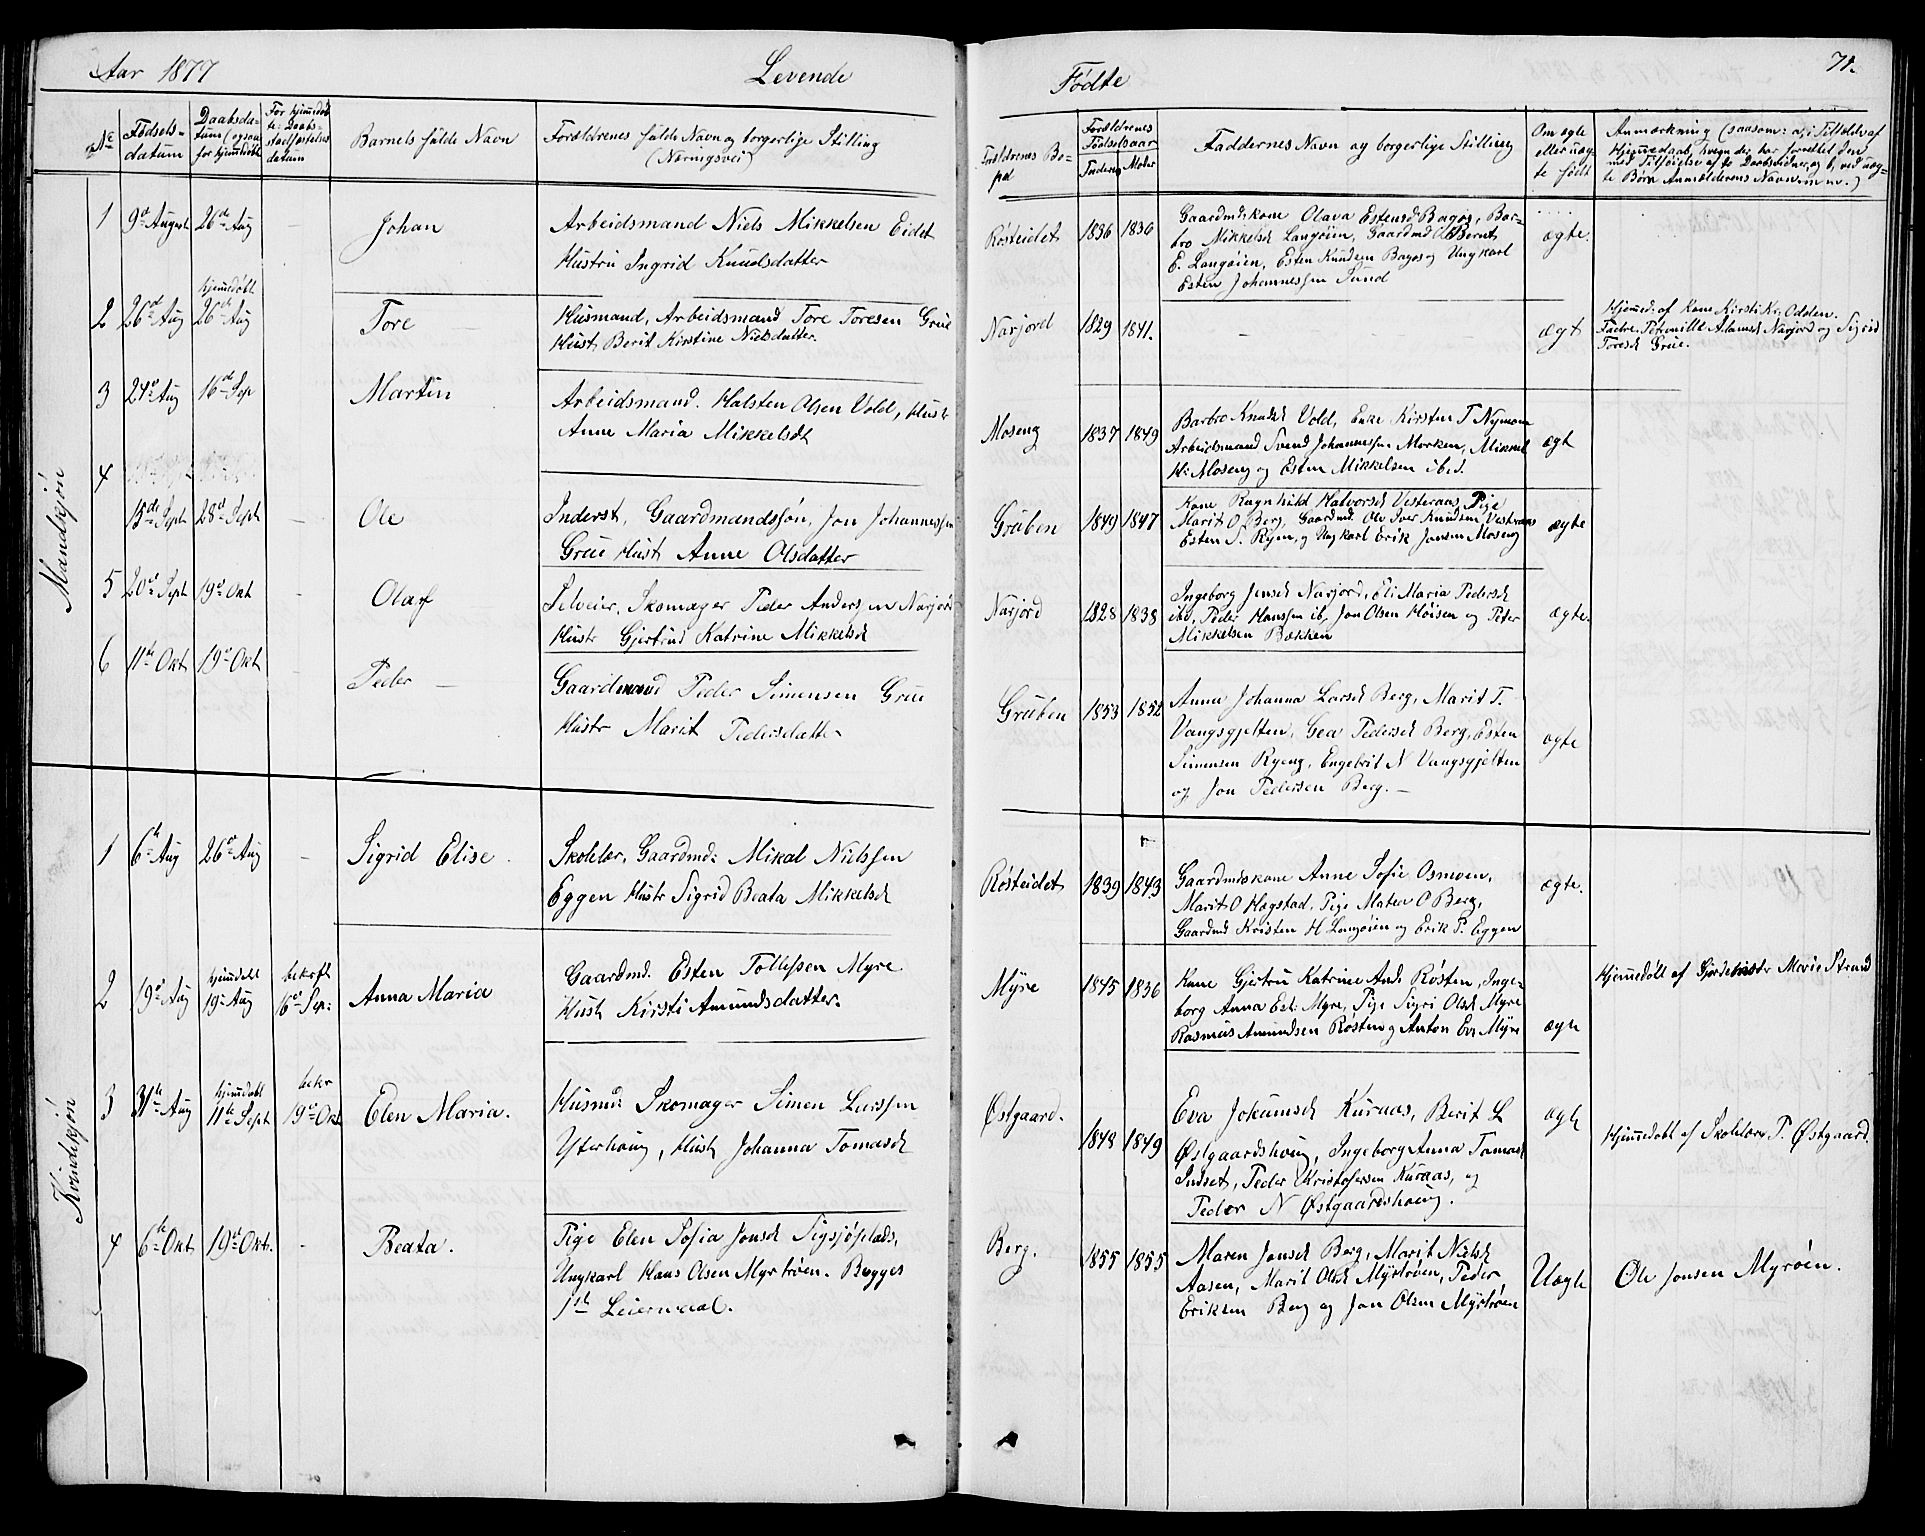 Aar 1877 Levende
No
Fødsels-
datum
Daabsda-
tum (ogsaa
for hjemmedøbt
For hjemmedøb
te: Daabs-
stadfæstelses
datum
Barnets fulde Navn
Forældrenes fulde Navn og borgerlige Stilling
(Næringsvei)
Mandkjøn
1 9de August 26de Aug Johan
Arbeidsmand Niels Mikkelsen Eidet
Hustru Ingrid Knudsdatter
hjemmedøbt
2 26de Aug 26de Aug Tore
Husmand, Arbeidsmand Tore Toresen Grue
Hust. Berit Kirstine Nielsdatter.
3 24de Aug 16de Sep Martin
Arbeidsmand. Halsten Olsen Vold, Hust
Anne Maria Mikkelsdt
4
15de Sept 28de Sept Ole
Inderst, Gaardmandssøn, Jon Johannessen
Grue Hust Anne Olsdatter
5 20de Sept 19de Okt Olaf
Selveier, Skomager Peder Andersen Narjord
Hustr Gjertrud Katrine Mikkelsd
6 11te Okt 19de Okt Peder
Gaardmand Peder Simensen Grue
Hustr Marit Pedersdatte
Kvindekjøn
1 6te Aug 26de Aug Sigrid Elise
Skolelær, Gaardmd: Mikal Nielssen
Eggen Hustr Sigrid Beata Mikkelsd
2 19de Aug hjemdøbt 19de Aug bekrft 16de Sep: Anna Maria
Gaardmd. Esten Tollefsen Myre
Hust Kirsti Amundsdatter.
3 31te Aug hjemdøbt 11te Sept bekr 19de Okt Elen Maria.
Husmd: Skomager Simen Larssen
Ytterhaug, Hust Johanna Tomasd
4 6te Okt 19de Okt. Beata.
Pige Elen Sofia Jonsd Sigsjøplads,
Ungkarl Hans Olsen Myrtrøen. Begges
1ste Leiermaal.
Fødte 71.
Forældrenes Bo-
pæl
Forældrenes
Fødselsaar
Faderens Moder
Faddernes Navn og borgerlige Stilling
Om ægte
eller uæg-
te født
Anmærkning (saasom: a, i Tilfælde af
Hjemmedaab, hvem der har forrettet den
med Tilføielse af to Daabsvidner, og b, ved uæg-
te Børn Anmelderens Navn m.m.)
Røsteidet 1836 1830
Gaardmdskone Olava Estensd Bagøs, Bar-
bro Mikkelsd Langøien, Gaardmd Ole Bernt
E. Langøien, Esten Knudsen Bagøs og Ungkarl
Esten Johannessen Sund
ægte.
Narjord 1829 1841.
ægt
Hjemed: af Kone Kirsti Kr. Odden.
Fadre. Petronille Adamsd Narjord og Sigrid
Toresd Grue.
Moseng 1837 1849
Barbro Knudsd Vold, Enke Kirsten T Nymoen
Arbeidsmand Svend Johannessen Morken, Mikkel
H. Moseng og Esten Mikkelsen ibd.
ægt
Gruben 1849 1847
Kone Ragnhild Halvorsd Vesteraas, Pige
Marit O Berg, Gaardmd. Ole Iver Knudsen Vesteraas
Esten S. Ryen, og Ungkarl Erik Jonsen Moseng
ægte
Narjord 1828 1838
Ingeborg Jensd Narjord, Eli Maria Pedersd
ibd, Peder Hanssen ib, Jon Olsen Høisen og Peter
Mikkelsen Bækken
ægte.
Gruben 1853 1852
Anna Johanna Larsd Berg, Marit T.
Vangsgjelten, Gea Pedersd Berg, Esten
Simensen Ryeng, Engebrit N Vangsgjelten
og Jon Pedersen Berg.
ægte
Røsteidet 1839 1843
Gaardmdskone Anne Sofie Osmoen,
Marit O Hagstad, Pige Maten O Berg,
Gaardmd Kristen H Langøien og Erik P. Eggen
ægte.
Myre 1845 1836
Kone Gjertru Katrine Ands Røsten, Inge-
borg Anna Est: Myre, Pige Sigri Olsd Myre
Rasmus Amundsen Røsten og Anton Evr Myre
ægte
Hjemmedøbt af Gjordemodr Marie Strand
Østgaard. 1848 1849
Eva Jokumsd Kuraas, Berit L
Østgaardshaug, Ingeborg Anna Tomasd
Indset, Peder Kristofersen Kuraas, og
Peder N Østgaardshaug.
ægte
Hjemmedøbt af Skolelærer P. Østgaard.
Berg. 1855 1855
Maren Jonsd Berg, Marit Nielsd
Aasen, Marit Olsd Myrtrøen, Peder
Eriksen Berg og Jon Olsen Myrtrøen
Uægte
Ole Jonsen Myrøen.